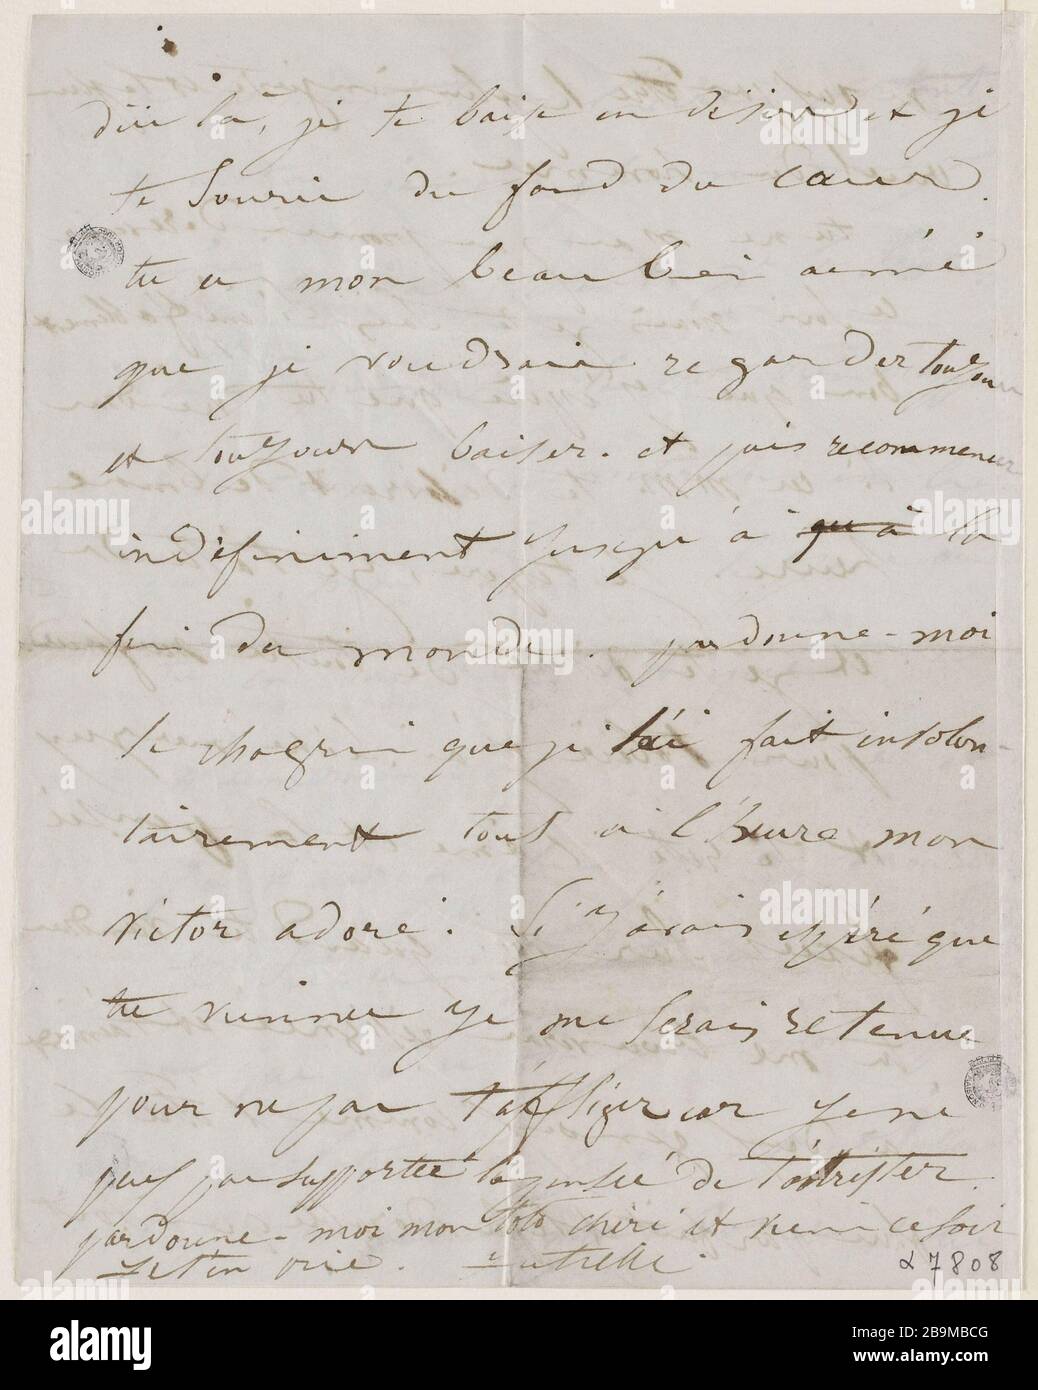 là, je te baise en désir et je
te souri du fond du cœur.
tu es mon beau bien aimé
que je voudrais regarder toujou
et toujours baiser. et puis recommencer
indéfiniment jusqu'à qu'à la
fin du monde. pardonne-moi
le chagrin que je t'ai fait involon-
tairement tout à l'heure mon
victor adoré. Si j'avais espéré que
tu vinnes je me serais retenue
pour ne pas t'affliger car je ne
puis pas supporter la pensée de t'attrister.
pardonne-moi mon toto chéri et viens ce soir
je t'en prie.
α 7808
alamy
Image ID: 2B9MBCG
www.alamy.com